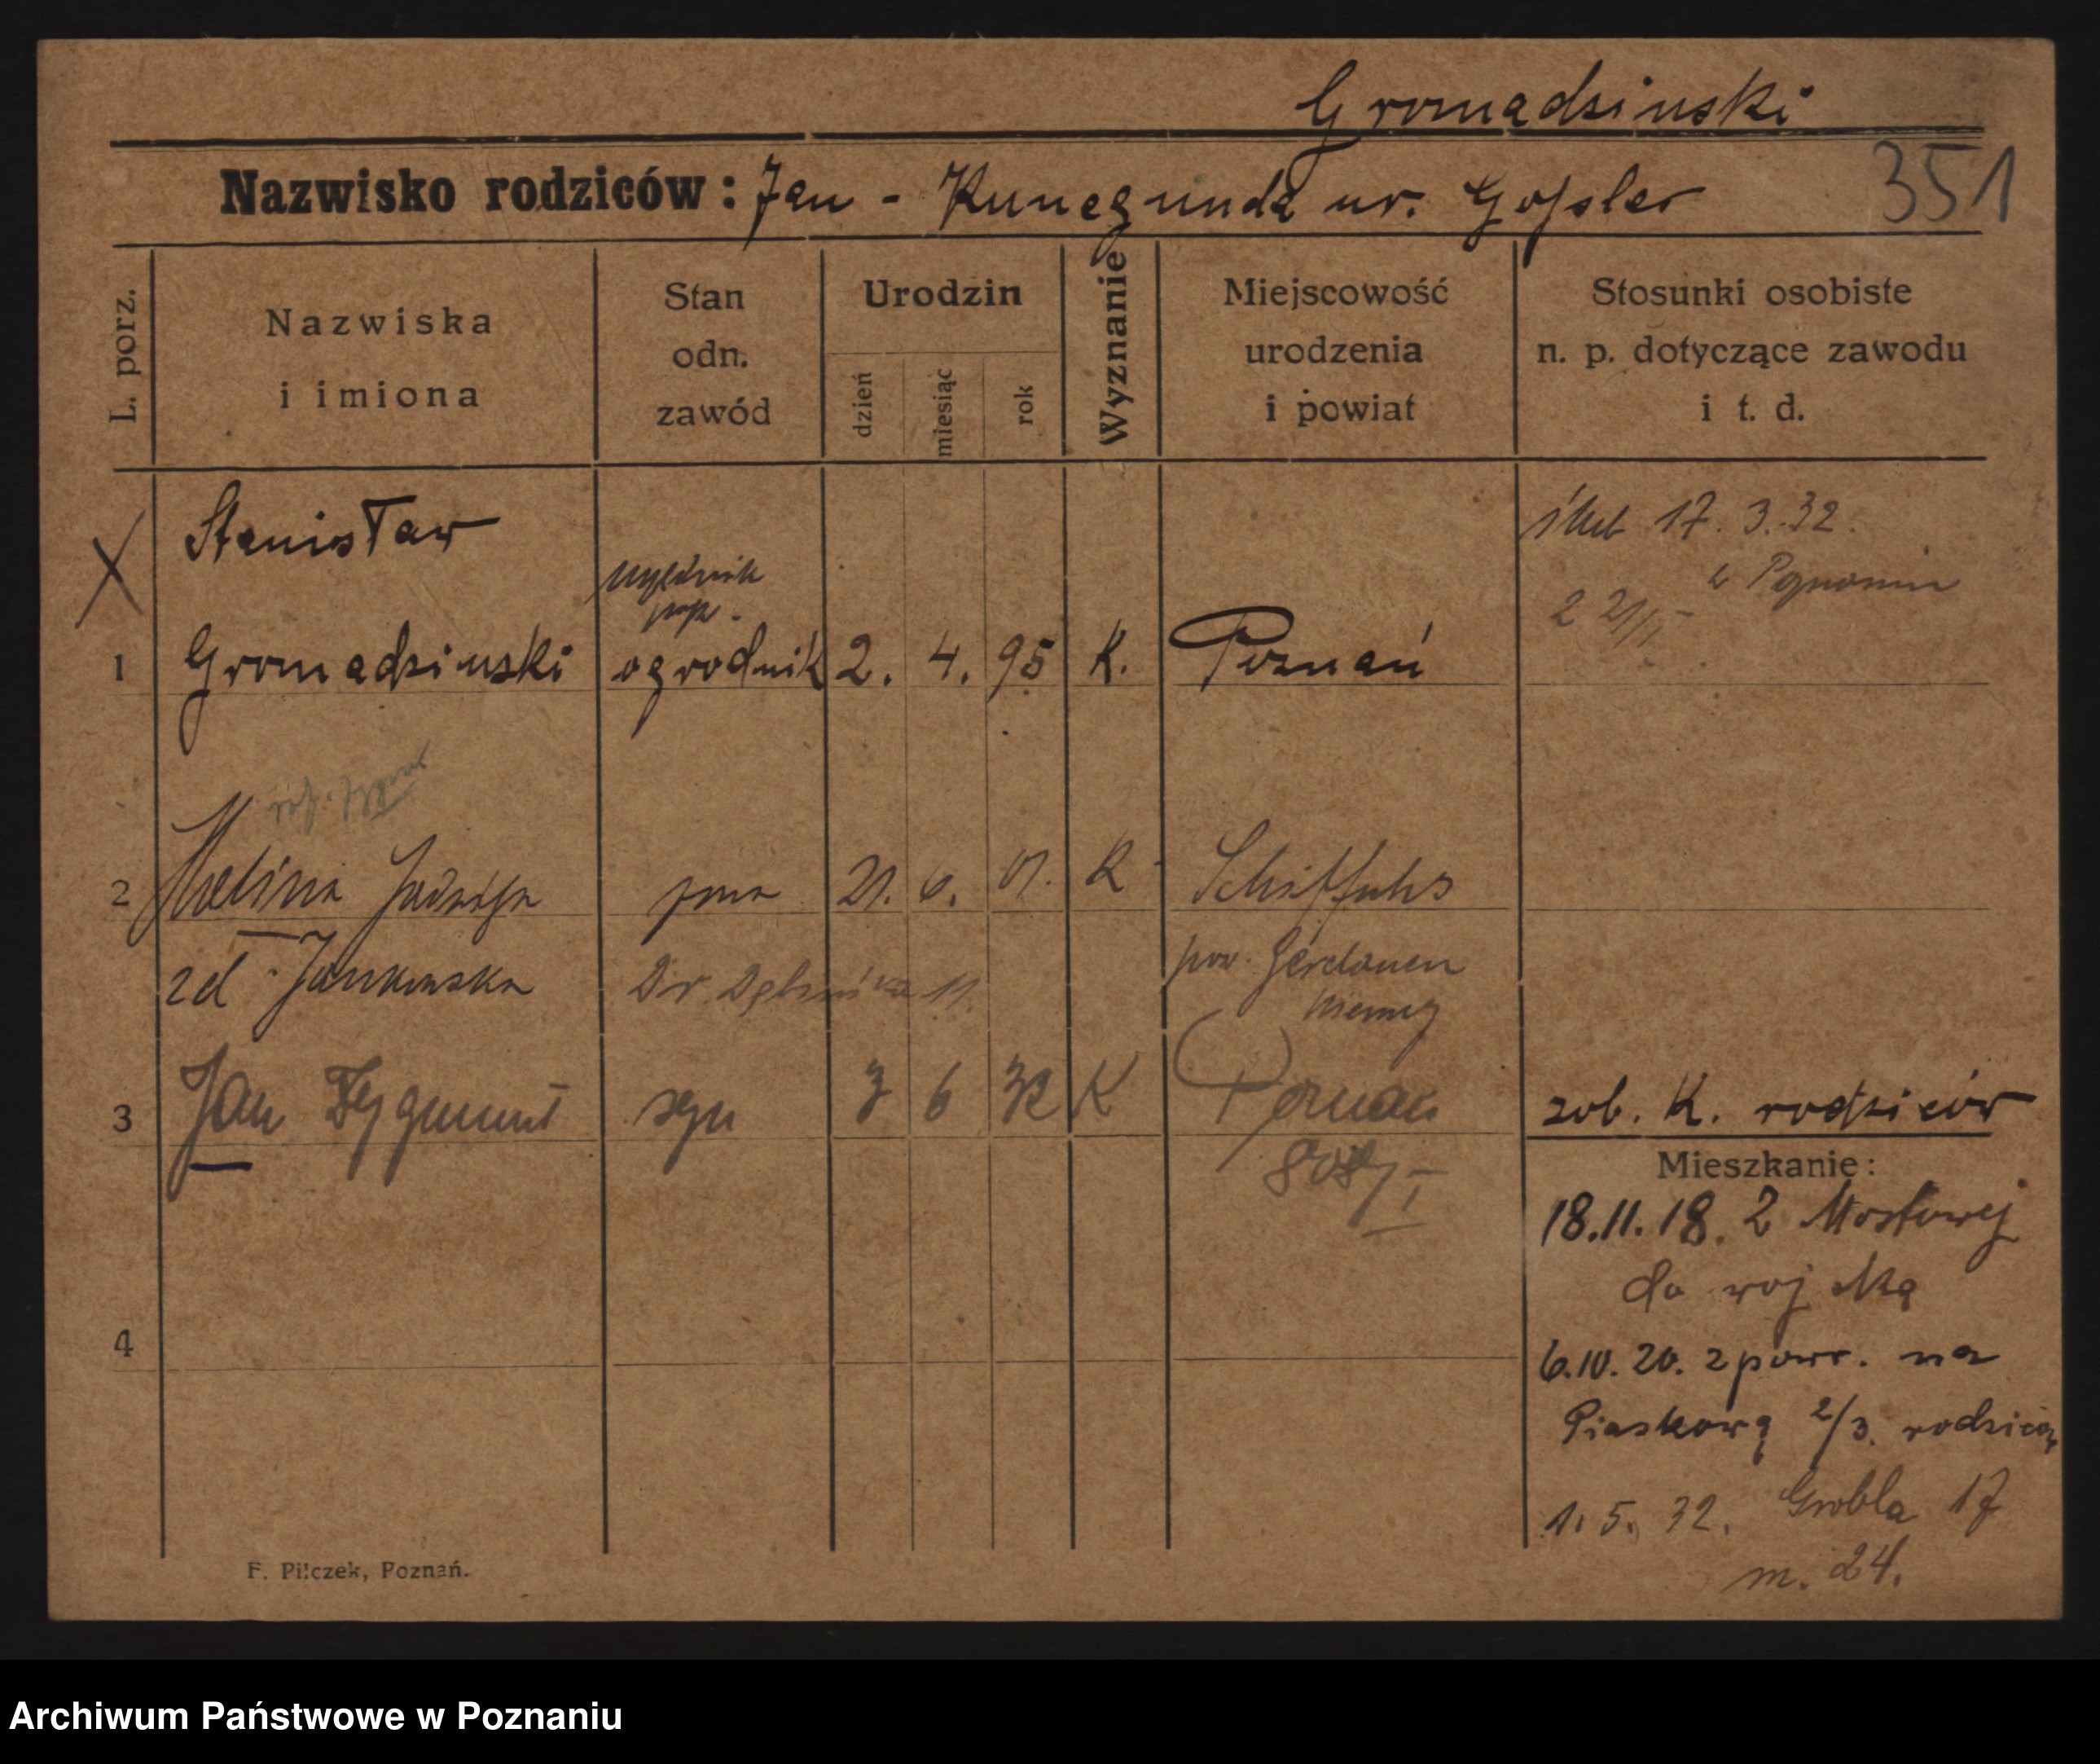 Gromadzinski
Nazwisko rodziców: Jan - Kunegunda ur. Gossler
351
L. porz.
Nazwiska
i imiona
Stan
odn.
zawód
Urodzin
dzień
miesiąc
rok
Wyznanie
Miejscowość
urodzenia
i powiat
Stosunki osobiste
n. p. dotyczące zawodu
i t. d.
Stanisław
ślub 17. 3. 32.
w Poznaniu
1 Gromadzinski ogrodnik 2. 4. 95 K. Poznań
2 Halina Jadwiga żona 21. 6. 01. K Schiffuhs
zd Jankowska
pow. Gerdauen
Niemcy
3 Jan Zygmunt syn 3 6 32 K Poznań
zob. K. rodziców
Mieszkanie:
18.11.18. z Mostowej
do wojska
4
6.10.20. z powr. na
Piaskową 2/3. rodziców
1. 5. 32. Grobla 17
m. 24.
F. Pilczek, Poznań.
Archiwum Państwowe w Poznaniu